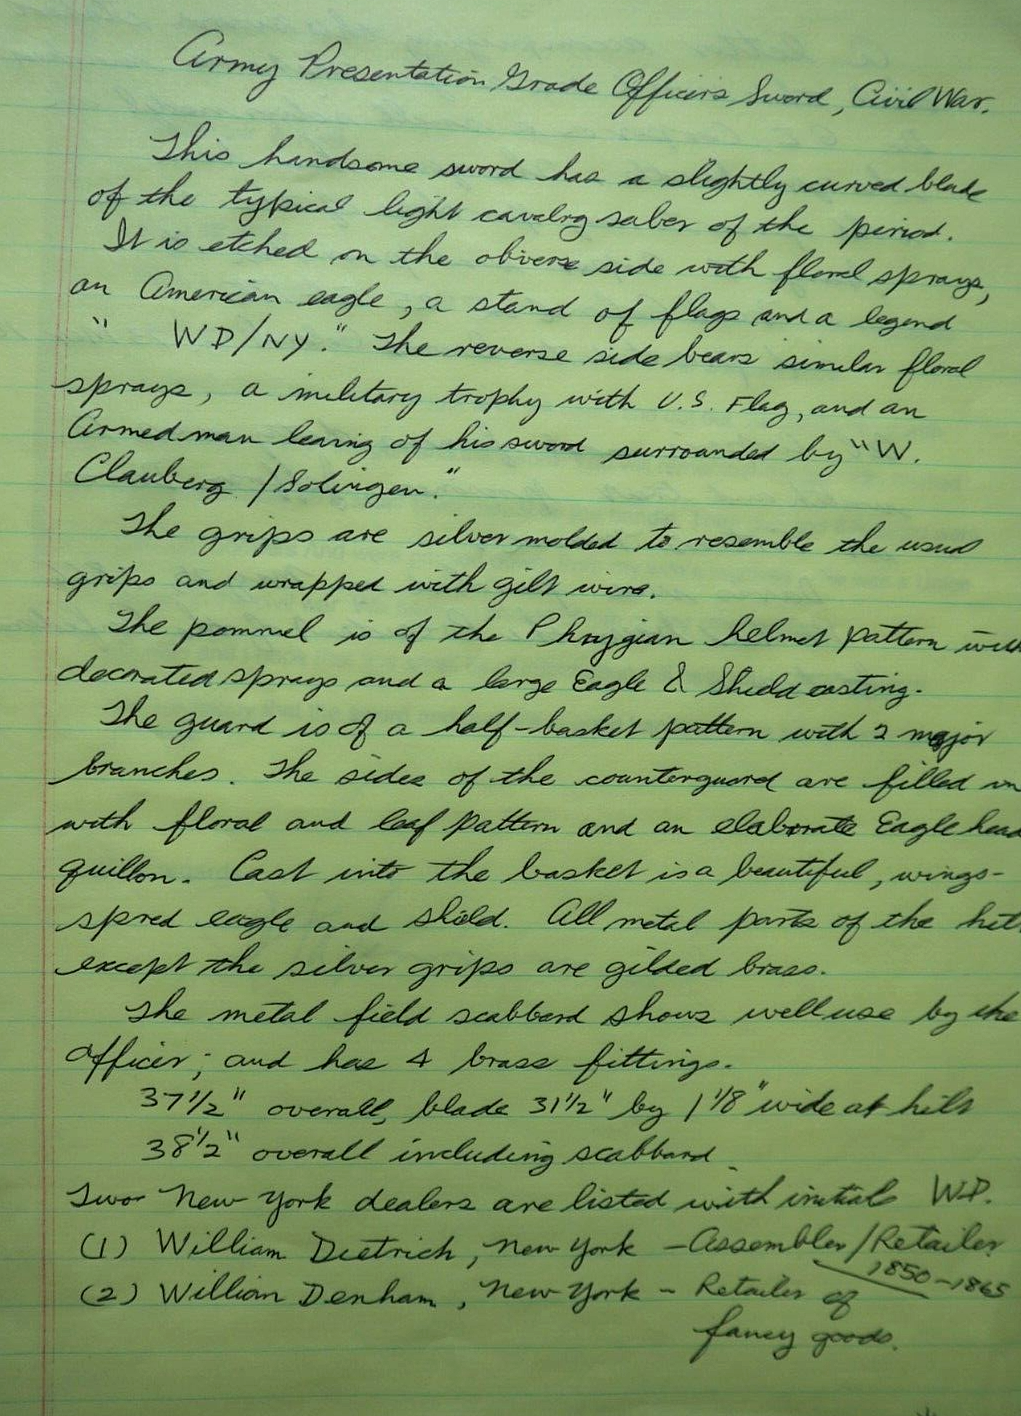 Army Presentation Grade Officers Sword, Civil War.
This handsome sword has a slightly curved blade
of the typical light cavalry saber of the period.
It is etched on the obverse side with floral sprays,
an American eagle, a stand of flags and a legend
" WD/NY." The reverse side bears similar floral
sprays, a military trophy with U.S. Flag, and an
Armed man leaning of his sword surrounded by "W.
Clauberg / Solingen."
The grips are silver molded to resemble the usual
grips and wrapped with gilt wire.
The pommel is of the Phrygian helmet pattern with
decorated sprays and a large Eagle & Shield casting.
The guard is of a half-basket pattern with 2 major
branches. The sides of the counterguard are filled in
with floral and leaf pattern and an elaborate Eagle head
quillon. Cast into the basket is a beautiful, wings-
spred eagle and shield. All metal parts of the hilt
except the silver grips are gilded brass.
The metal field scabbard shows well use by the
officer; and has 4 brass fittings.
37 1/2" overall, blade 31 1/2" by 1 1/8" wide at hilt
38 1/2" overall including scabbard.
Two New York dealers are listed with initials W.D.
(1) William Dietrich, New York - Assembler/Retailer
1850-1865
(2) William Denham, New York - Retailer of
fancy goods.